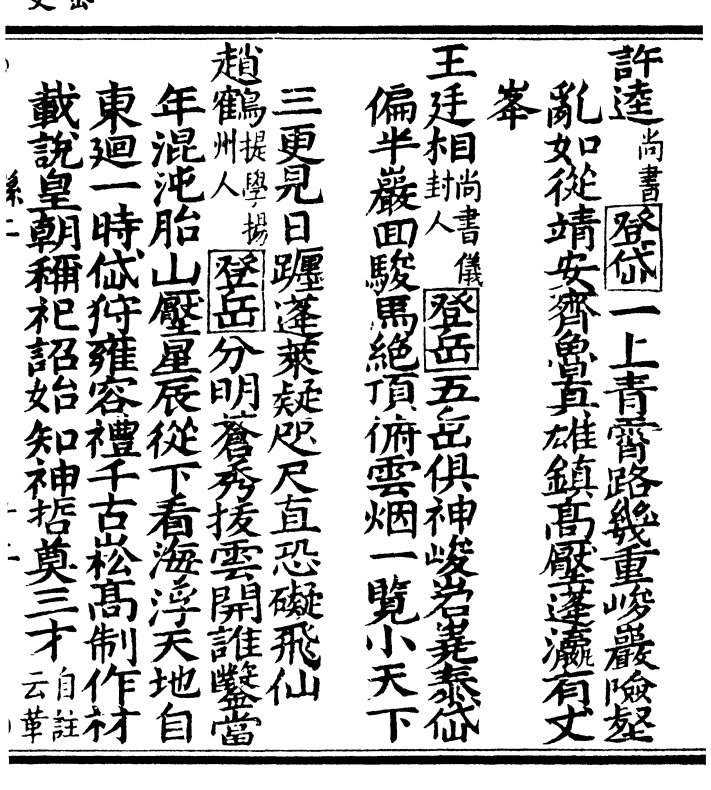 許逵尚書登岱一上青霄路幾重峻巖險壑
亂如從靖安齊魯真雄鎮高壓蓬瀛有丈
峯
王廷相尚書儀封人登岳五岳俱神峻岩嶤泰岱
偏半巖回駿馬絶頂俯雲烟一覽小天下
三更見日躔蓬萊疑咫尺直恐礙飛仙
趙鶴提學揚州人登岳分明蒼秀抜雲開誰鑿當
年混沌胎山壓星辰從下看海浮天地自
東廻一時岱狩雍容禮千古崧高制作材
載說皇朝稱祀詔始知神哲奠三才自註云華